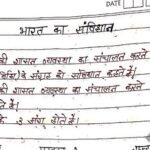 भारत का संविधान
की शासन व्यवस्था का संचालन करते
के संग्रह को संविधान कहते हैं।
की शासन व्यवस्था का संचालन करते
हैं।
के 3 अंग होते हैं।